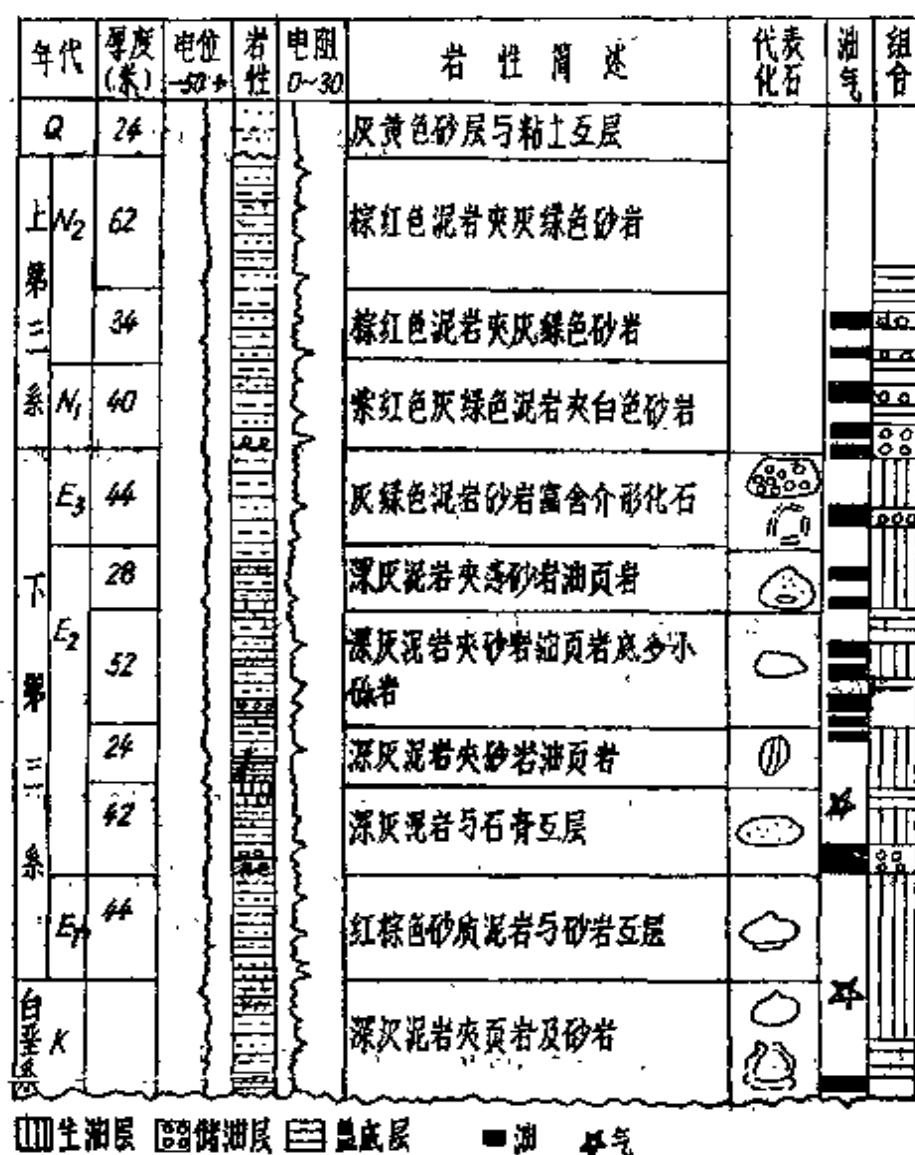 年代 厚度(米) 电位 -50+ 岩性 电阻 0~30 岩性简述 代表化石 油气 组合
Q 24 灰黄色砂层与粘土互层
上第三系 N2 62 棕红色泥岩夹灰绿色砂岩
34 棕红色泥岩夹灰绿色砂岩
N1 40 紫红色灰绿色泥岩夹白色砂岩
下第三系 E3 44 灰绿色泥岩砂岩富含介形化石
E2 28 深灰泥岩夹砂岩油页岩
52 深灰泥岩夹砂岩油页岩底多小
砾岩
24 深灰泥岩夹砂岩油页岩
42 深灰泥岩与石膏互层
E1 44 红棕色砂质泥岩与砂岩互层
白垩系 K 深灰泥岩夹页岩及砂岩
生油层 储油层 盖底层 油 气